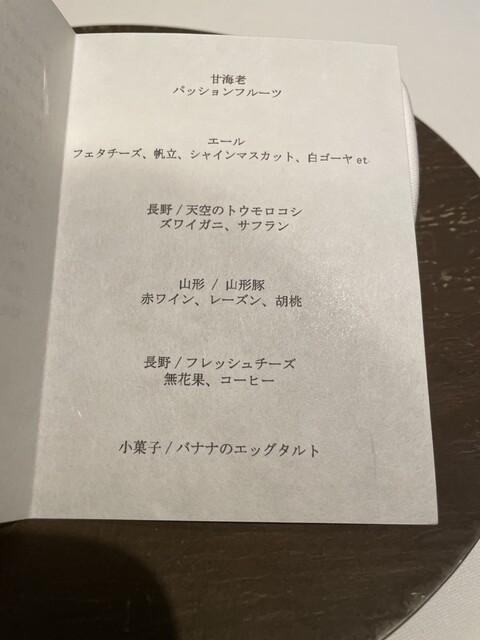 甘海老
パッションフルーツ
エール
フェタチーズ、帆立、シャインマスカット、白ゴーヤ et
長野 / 天空のトウモロコシ
ズワイガニ、サフラン
山形 / 山形豚
赤ワイン、レーズン、胡桃
長野 / フレッシュチーズ
無花果、コーヒー
小菓子 / バナナのエッグタルト